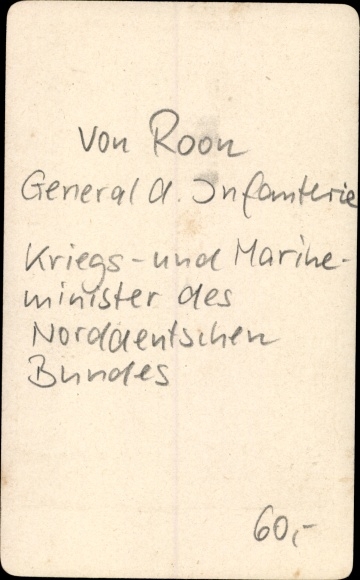 von Roon
General d. Infanterie
Kriegs- und Marine-
minister des
Norddeutschen
Bundes
60,-